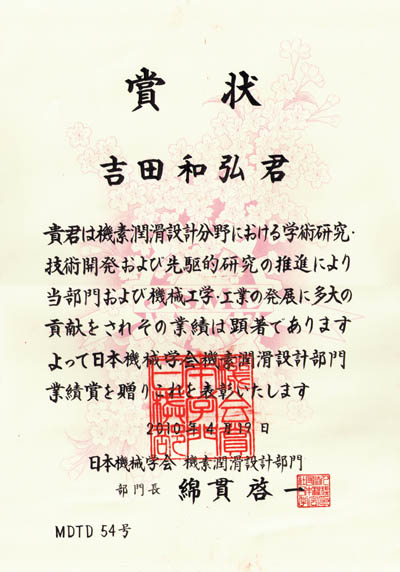 賞状
吉田和弘君
貴君は機素潤滑設計分野における学術研究・
技術開発および先駆的研究の推進により
当部門および機械工学・工業の発展に多大の
貢献をされその業績は顕著であります
よって日本機械学会機素潤滑設計部門
業績賞を贈りこれを表彰いたします
2010年4月19日
日本機械学会 機素潤滑設計部門
部門長 綿貫啓一
MDTD 54号